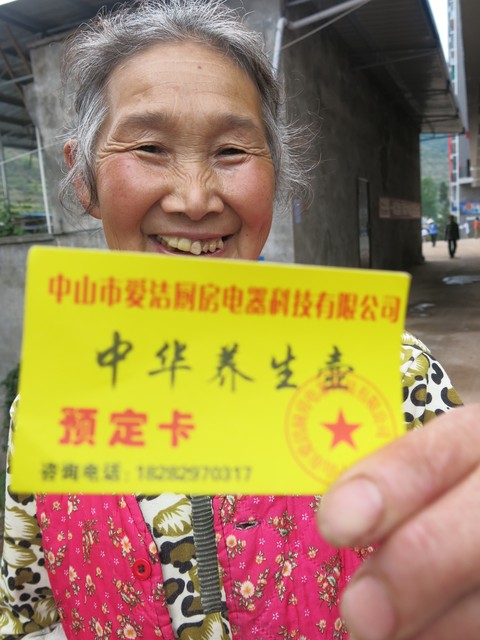 中山市爱洁厨房电器科技有限公司
中华养生壶
预定卡
咨询电话：18282970317